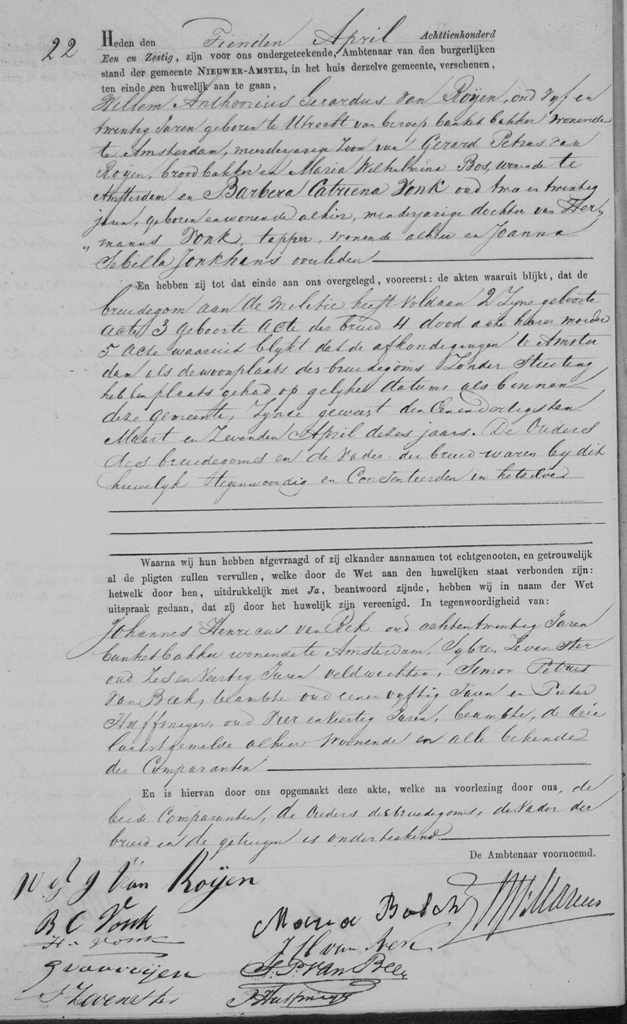 22 Heden den Tienden April Achttienhonderd
Een en Zestig, zijn voor ons ondergeteekende, Ambtenaar van den burgerlijken
stand der gemeente NIEUWER-AMSTEL, in het huis derzelve gemeente, verschenen,
ten einde een huwelijk aan te gaan,
Willem Anthonius Gerardus van Roijen, oud Vijf en
twintig Jaren geboren te Utrecht van beroep banketbakker wonende
te Amsterdam, meerderjarige Zoon van Gerard Petrus van
Royen, broodbakker en Maria Wilhelmina Bos, wonende te
Amsterdam en Barbera Catriena Vonk oud twee en twintig
jaren, geboren en wonende alhier, minderjarige dochter van Her„
„manus Vonk, tapper, wonende alhier en Joanna
Sibilla Jonkhans overleden
En hebben zij tot dat einde aan ons overgelegd, vooreerst: de akten waaruit blijkt, dat de
bruidegom aan de Militie heeft voldaan 2 Zijne geboorte
acte 3 geboorte acte der bruid 4 dood acte harer moeder
5 acte waaruit blijkt dat de afkondigingen te Amster
dam als de woonplaats des bruidegoms Zonder Stuiting
hebben plaats gehad op gelijke datums als binnen
deze gemeente, Zijnde geweest den Eenendertigsten
Maart en Zevenden April dezes jaars. De Ouders
des bruidegoms en de Vader der bruid waren bij dit
huwelijk tegenwoordig en Consenteerden in hetzelve
Waarna wij hun hebben afgevraagd of zij elkander aannamen tot echtgenooten, en getrouwelijk
al de pligten zullen vervullen, welke door de Wet aan den huwelijken staat verbonden zijn:
hetwelk door hen, uitdrukkelijk met Ja, beantwoord zijnde, hebben wij in naam der Wet
uitspraak gedaan, dat zij door het huwelijk zijn vereenigd. In tegenwoordigheid van:
Johannes Henricus van oud achtentwintig Jaren
banketbakker wonende te Amsterdam, Sybren Zevenster
oud Zes en Veertig Jaren veldwachter, Simon Petrus
van Beek, beambte oud eenenvijftig Jaren en Pieter
oud Vier en Veertig Jaren, beambte, de drie
laatstgemelde alhier wonende en alle bekenden
der Comparanten
En is hiervan door ons opgemaakt deze akte, welke na voorlezing door ons, de
beide Comparanten, de Ouders des bruidegoms, de Vader der
bruid en de getuigen is onderteekend
De Ambtenaar voornoemd.
W A G Van Roijen
B C Vonk Maria Bosch
H. Vonk J H van
G van roijen S. P. van Beek
S Zevenster